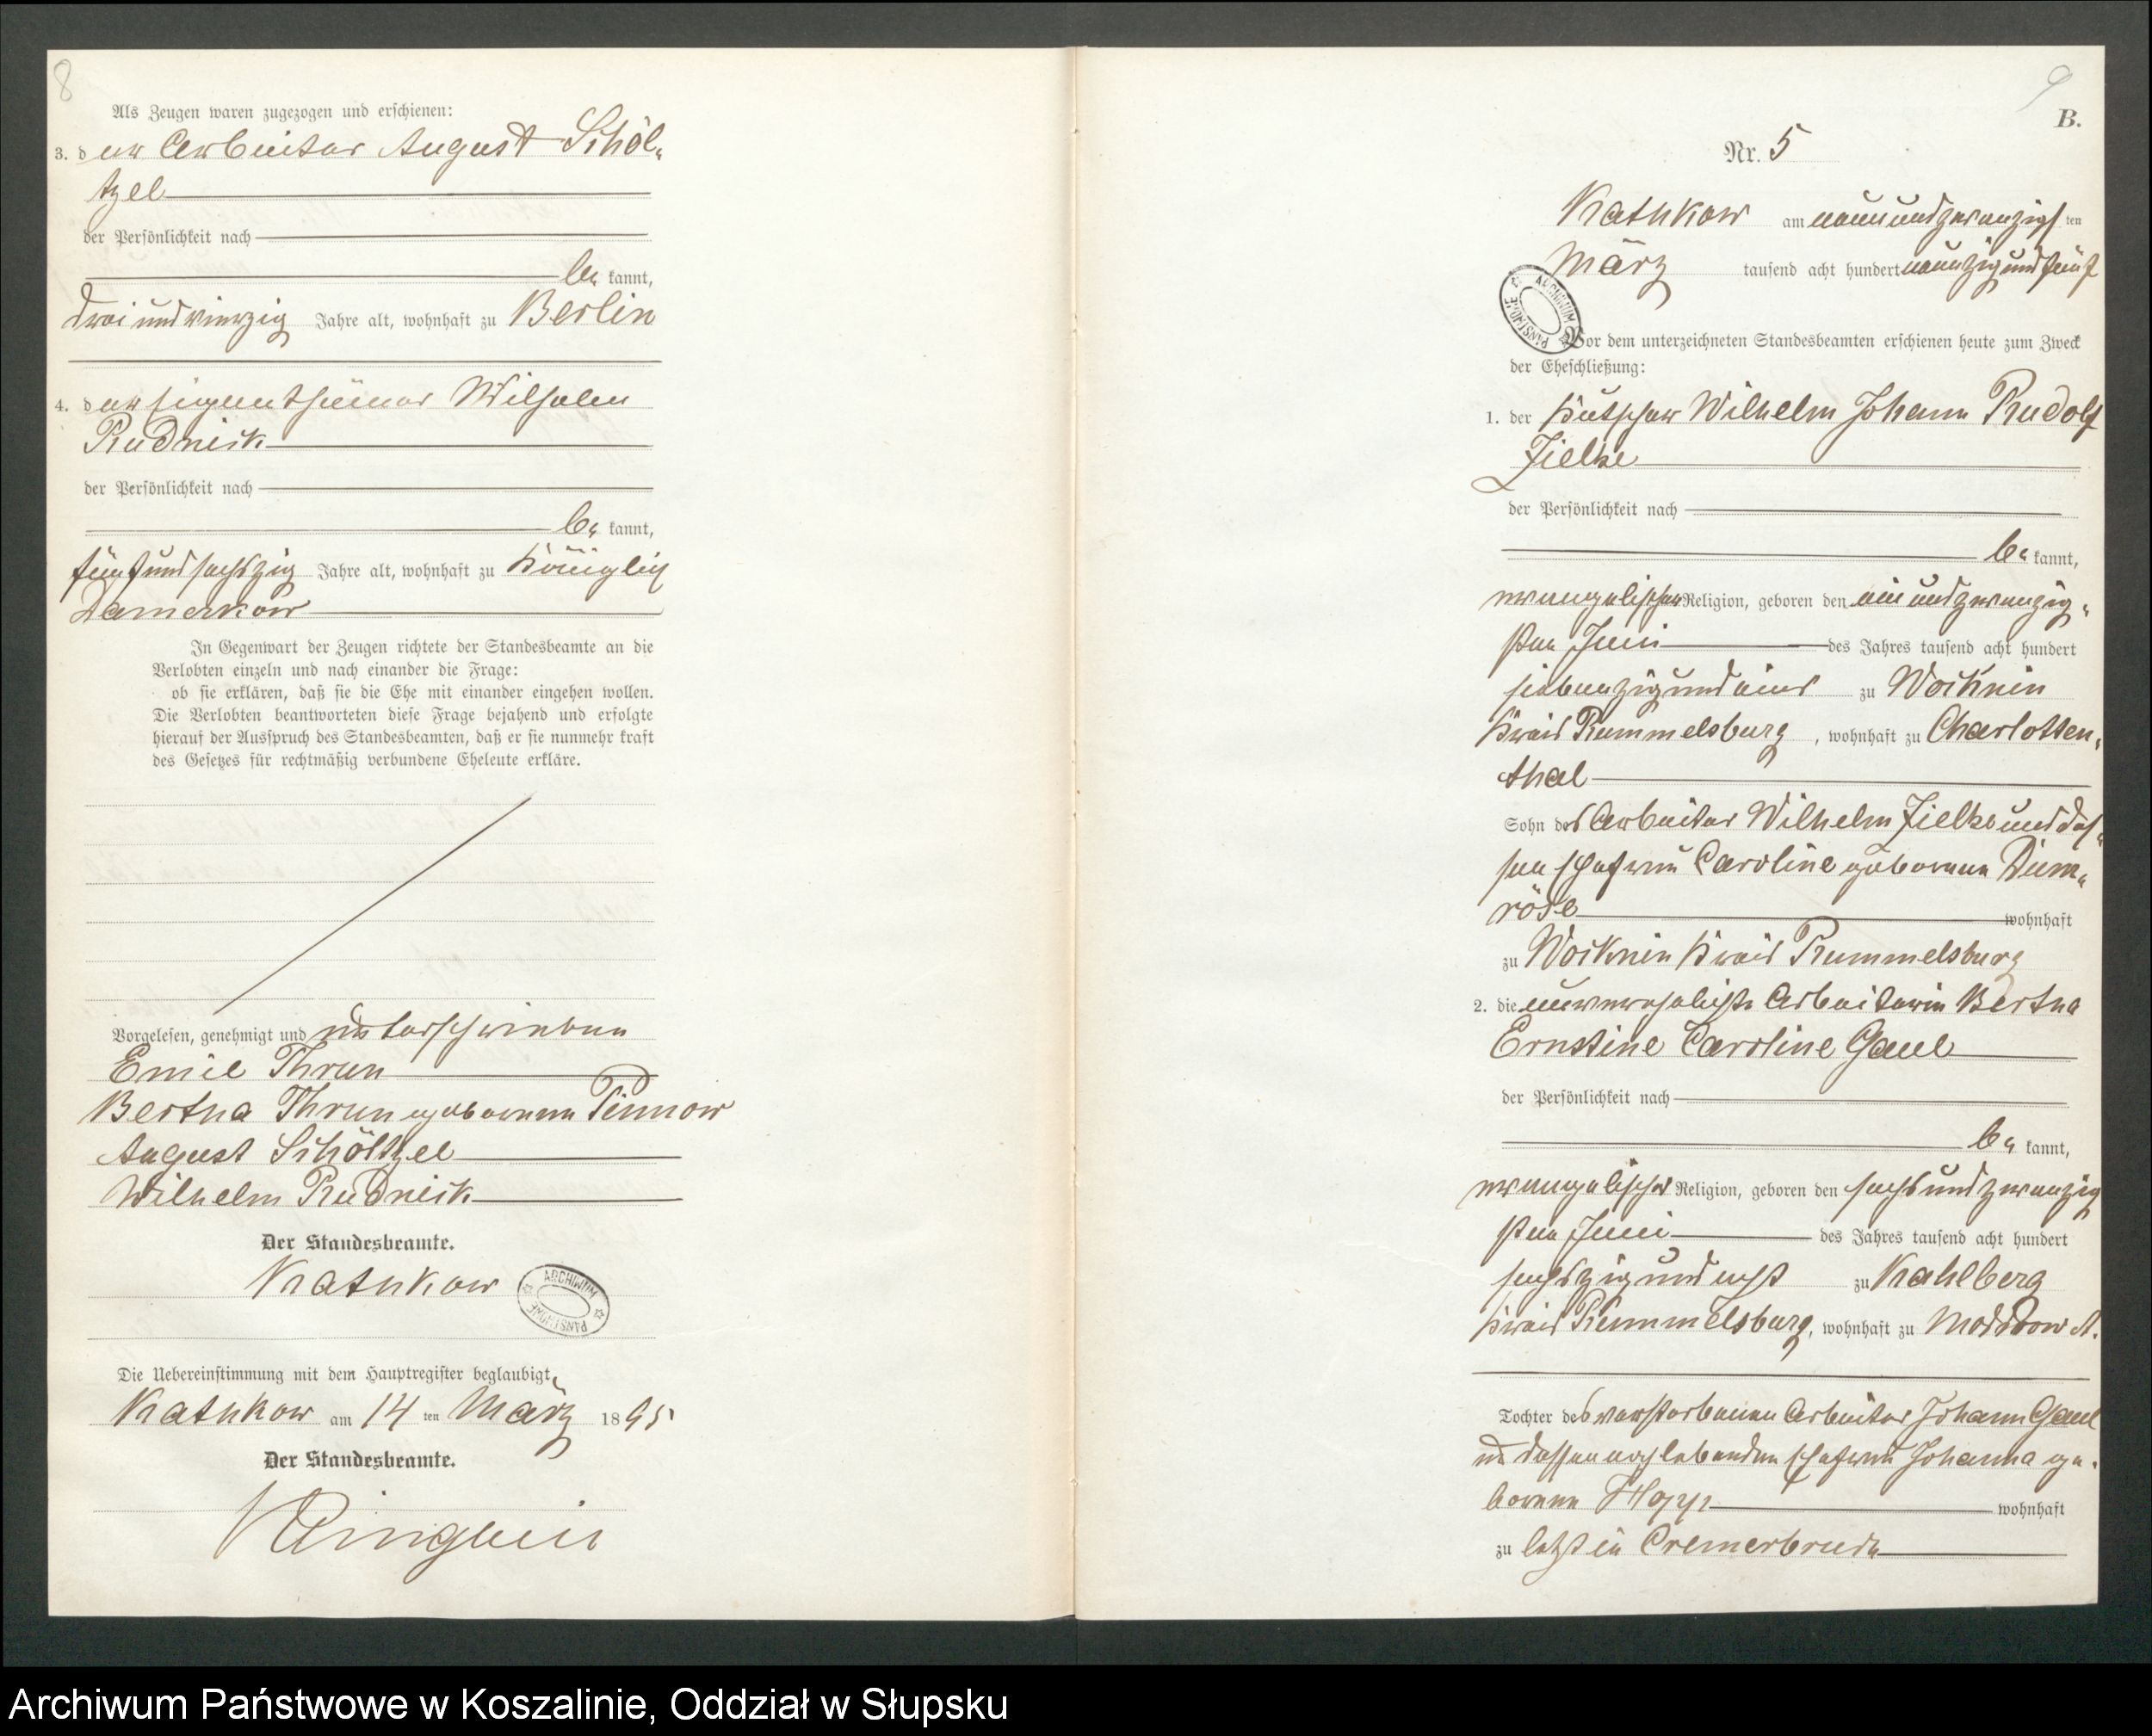 8
Als Zeugen waren zugezogen und erschienen:
3. der Arbeiter August Schöl-
tzel
der Persönlichkeit nach
be kannt,
dreiundvierzig Jahre alt, wohnhaft zu Berlin
4. der Eigenthümer Wilhelm
Rudnick
der Persönlichkeit nach
be kannt,
fünfundsechszig Jahre alt, wohnhaft zu Königlich
Damerkow
In Gegenwart der Zeugen richtete der Standesbeamte an die
Verlobten einzeln und nach einander die Frage:
ob sie erklären, daß sie die Ehe mit einander eingehen wollen.
Die Verlobten beantworteten diese Frage bejahend und erfolgte
hierauf der Ausspruch des Standesbeamten, daß er sie nunmehr kraft
des Gesetzes für rechtmäßig verbundene Eheleute erkläre.
Vorgelesen, genehmigt und unterschrieben
Emil Thrun
Bertha Thrun geborene Pinnow
August Schöltzel
Wilhelm Rudnick
Der Standesbeamte.
Kathkow
ARCHIWUM PAŃSTWOWE
Die Uebereinstimmung mit dem Hauptregister beglaubigt
Kathkow am 14 ten März 1895
Der Standesbeamte.
9
B.
Nr. 5
Kathkow am neunundzwanzigsten
März tausend acht hundert neunzig und fünf
ARCHIWUM PAŃSTWOWE
Vor dem unterzeichneten Standesbeamten erschienen heute zum Zweck
der Eheschließung:
1. der Kutscher Wilhelm Johann Rudolf
Zielke
der Persönlichkeit nach
be kannt,
evangelischer Religion, geboren den einundzwanzig-
sten Juni des Jahres tausend acht hundert
siebenzig und eins zu Wocknin
Kreis Rummelsburg, wohnhaft zu Charlotten-
thal
Sohn des Arbeiter Wilhelm Zielke und des-
sen Ehefrau Caroline geborene Dum-
röse wohnhaft
zu Wocknin Kreis Rummelsburg
2. die unverehelichte Arbeiterin Bertha
Ernstine Caroline Gaul
der Persönlichkeit nach
be kannt,
evangelischer Religion, geboren den sechsundzwanzig
sten Juni des Jahres tausend acht hundert
sechszig und acht zu Kahlberg
Kreis Rummelsburg, wohnhaft zu Moddrow A.
Tochter des verstorbenen Arbeiter Johann Gaul
und dessen noch lebenden Ehefrau Johanna ge-
borene Hopp wohnhaft
zu letzt in Cremerbruch
Archiwum Państwowe w Koszalinie, Oddział w Słupsku